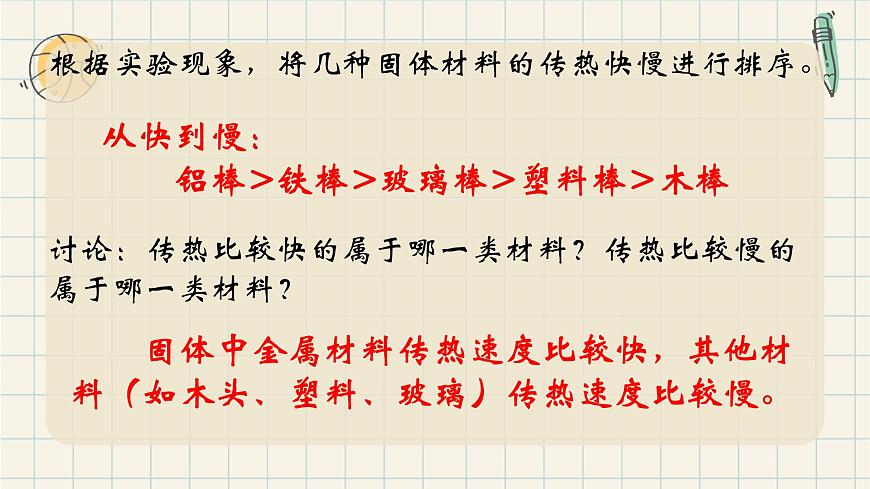 根据实验现象，将几种固体材料的传热快慢进行排序。
从快到慢：
铝棒＞铁棒＞玻璃棒＞塑料棒＞木棒
讨论：传热比较快的属于哪一类材料？传热比较慢的
属于哪一类材料？
固体中金属材料传热速度比较快，其他材
料（如木头、塑料、玻璃）传热速度比较慢。